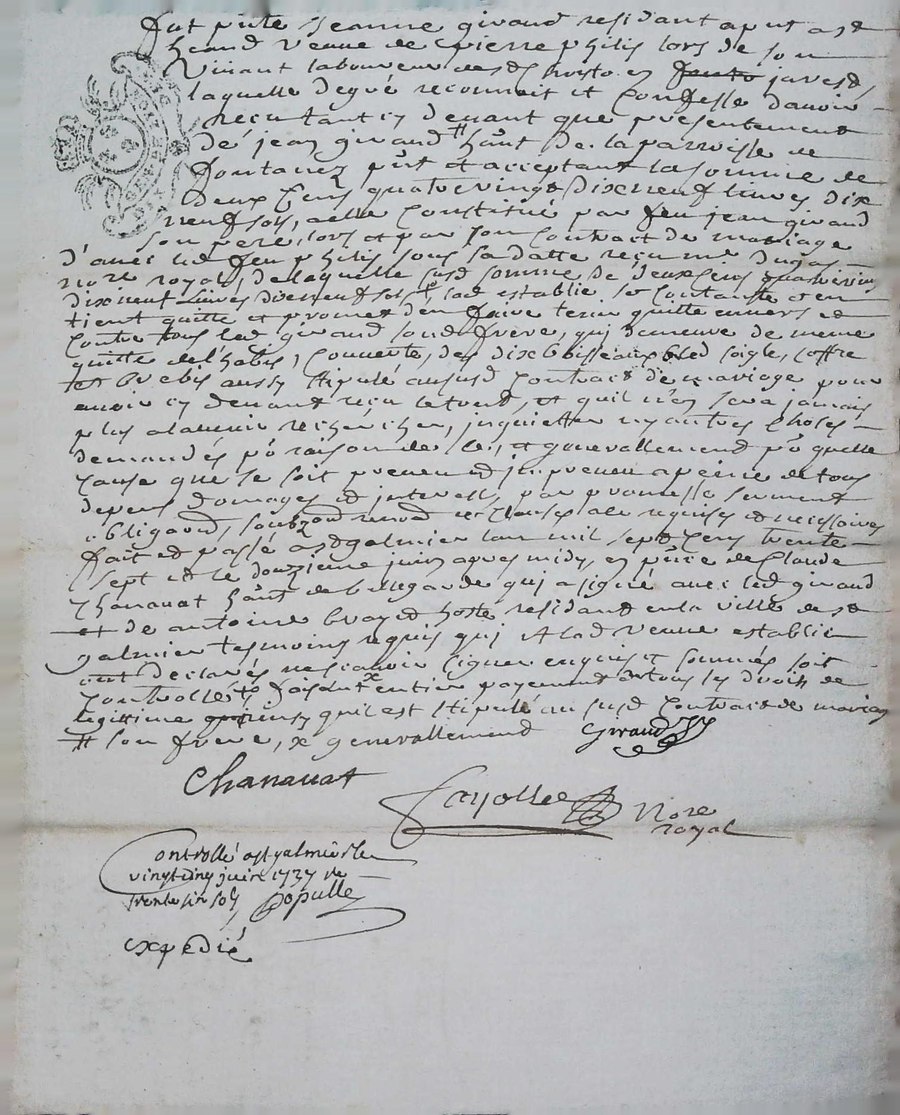 fut pnte Jeanne giraud residant a pnt a st
heand veuve de pierre philis lors de son
vivant laboureur de
laquelle de gré reconnoit et Confesse d'avoir
reçu tant cy devant que présentement
de jean giraud # hant de la parroisse de
fontanez pnt et acceptant la somme de
deux Cens quatre vingt dix neuf livres dix
neuf sols, a elle Constitué par feu jean giraud
son pere, lors et par son Contrait de mariage
d'avec led feu philis sous sa datte reçu me dugas
nore royal, de laquelle susd somme de deux Cens quatre vingt
dix neuf livres dix neuf sols, lad establie se Contante et en
tient quitte et promet d'en faire tenir quitte envers et
Contre tous led giraud sond frere, qui demeure de meme
quitte de l'habit, Couverte, des dix bled soigle, Coffre
et brebis aussy stipulé au susd Contrait de mariage pour
avoir cy devant reçu le tout, et qu'il n'en sera jamais
plus a l'avenir recherché, inquietté ny autres choses
demandés po raison de ce, et generallement po quelle
Cause que ce soit preveu et impreveu a peine de tous
depens domages et interests, par promesse serment
obligaon, renond et Clauses a ce requises et necessaires
fait et passé a st galmier l'an mil sept Cens trente
sept et le douzieme juin apres midy, en pnce de Claude
Chanavat hant de bellegarde qui a signé avec led giraud
et de antoine hoste residant en la ville de st
galmier tesmoins requis qui et lad veuve establie
ont declarés ne scavoir signer enquis et sommés soit
Controllé x faisant entier payement de tous les droits de
legittime qu'il est stipulé au susd Contrait de mariag
# son frere, x generallement Giraud
Chanavat
Fayolle Nore
royal
Controllé a st galmier le
vingt cinq juin 1737 re
trente six sols Populle
expedié